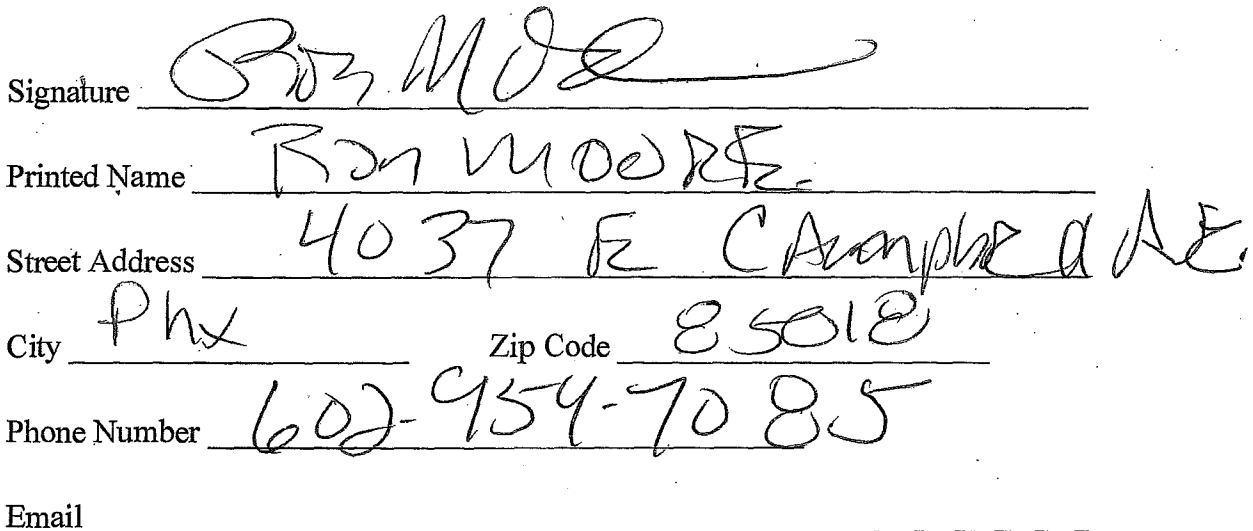 Signature Ron Moore
Printed Name Ron MOORE
Street Address 4037 E CAmpbell AE.
City Phx Zip Code 85018
Phone Number 602-954-7085
Email